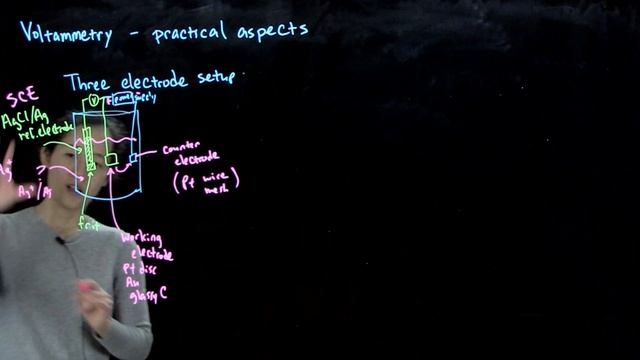 Voltammetry - practical aspects
Three electrode setup
SCE
AgCl/Ag
ref. electrode
V
power supply
Ag+
Ag+/Ag
counter
electrode
(Pt wire
mesh)
frit
working
electrode
Pt disc
Au
glassy C